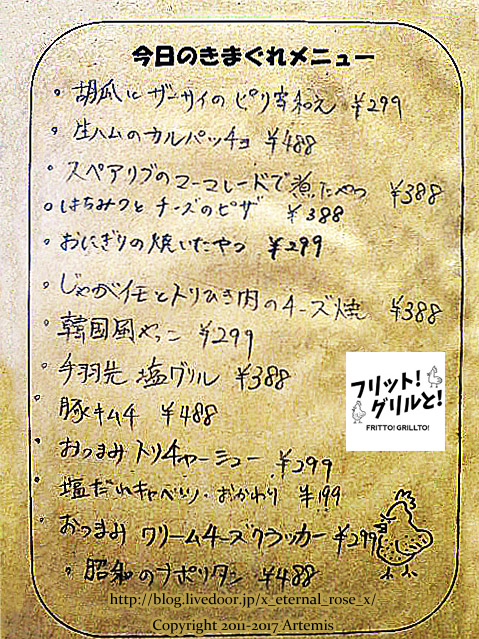 今日のきまぐれメニュー
胡瓜とザーサイのピリ辛和え ¥299
生ハムのカルパッチョ ¥488
スペアリブのマーマレードで煮たやつ ¥388
はちみつとチーズのピザ ¥388
おにぎりの焼いたやつ ¥299
じゃがイモとトリひき肉のチーズ焼 ¥388
韓国風やっこ ¥299
手羽先 塩グリル ¥388
豚キムチ ¥488
おつまみ トリチャーシュー ¥299
塩だれキャベツ・おかわり ¥199
おつまみ クリームチーズクラッカー ¥299
昭和のナポリタン ¥488
フリット!
グリルと!
FRITTO! GRILLTO!
http://blog.livedoor.jp/x_eternal_rose_x/
Copyright 2011-2017 Artemis